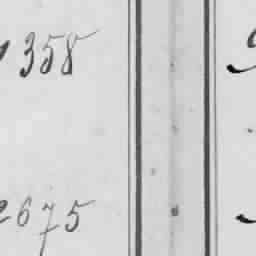 358
2675